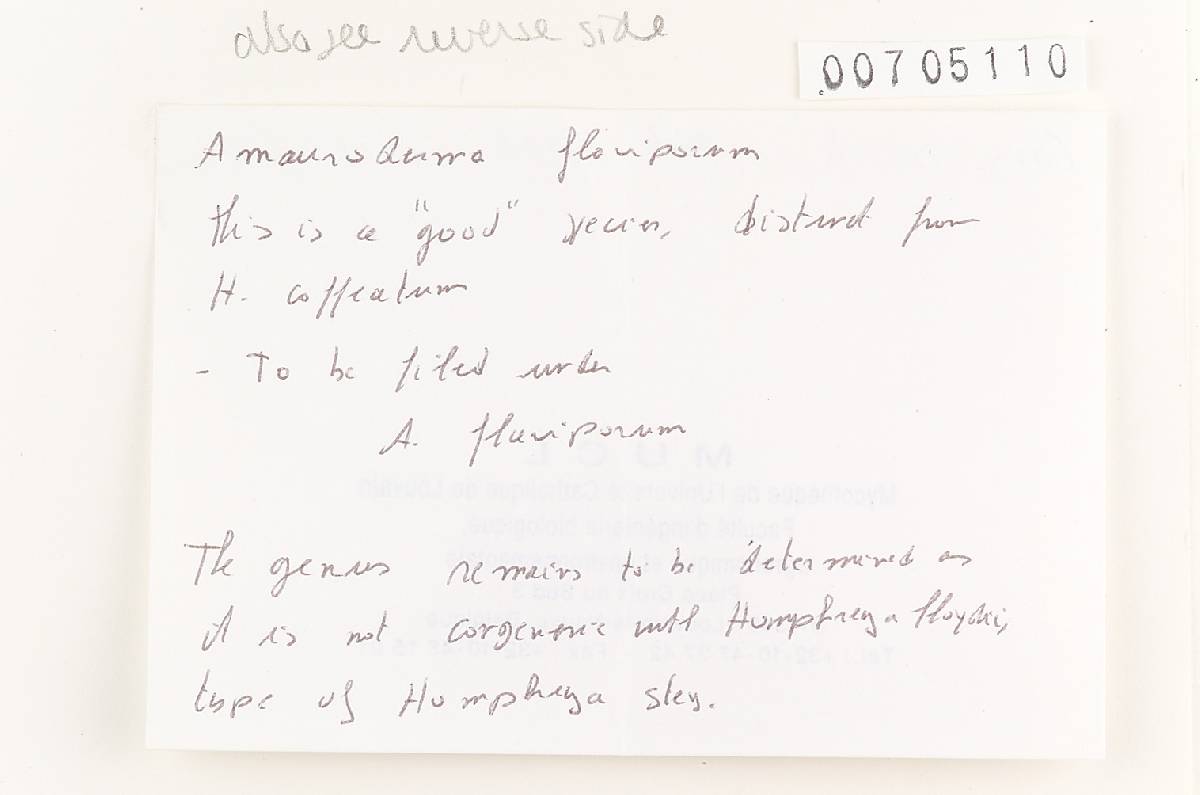 also see reverse side
00705110
Amauroderma flaviporum
This is a "good" species, distinct from
H. coffeatum
- To be filed under
A. flaviporum
M U C L
Mycothèque de l'Université Catholique de Louvain
Faculté d'ingénierie biologique,
Place Croix du Sud 3
The genus remains to be determined as
it is not congeneric with Humphreya lloydii,
type of Humphreya stey.